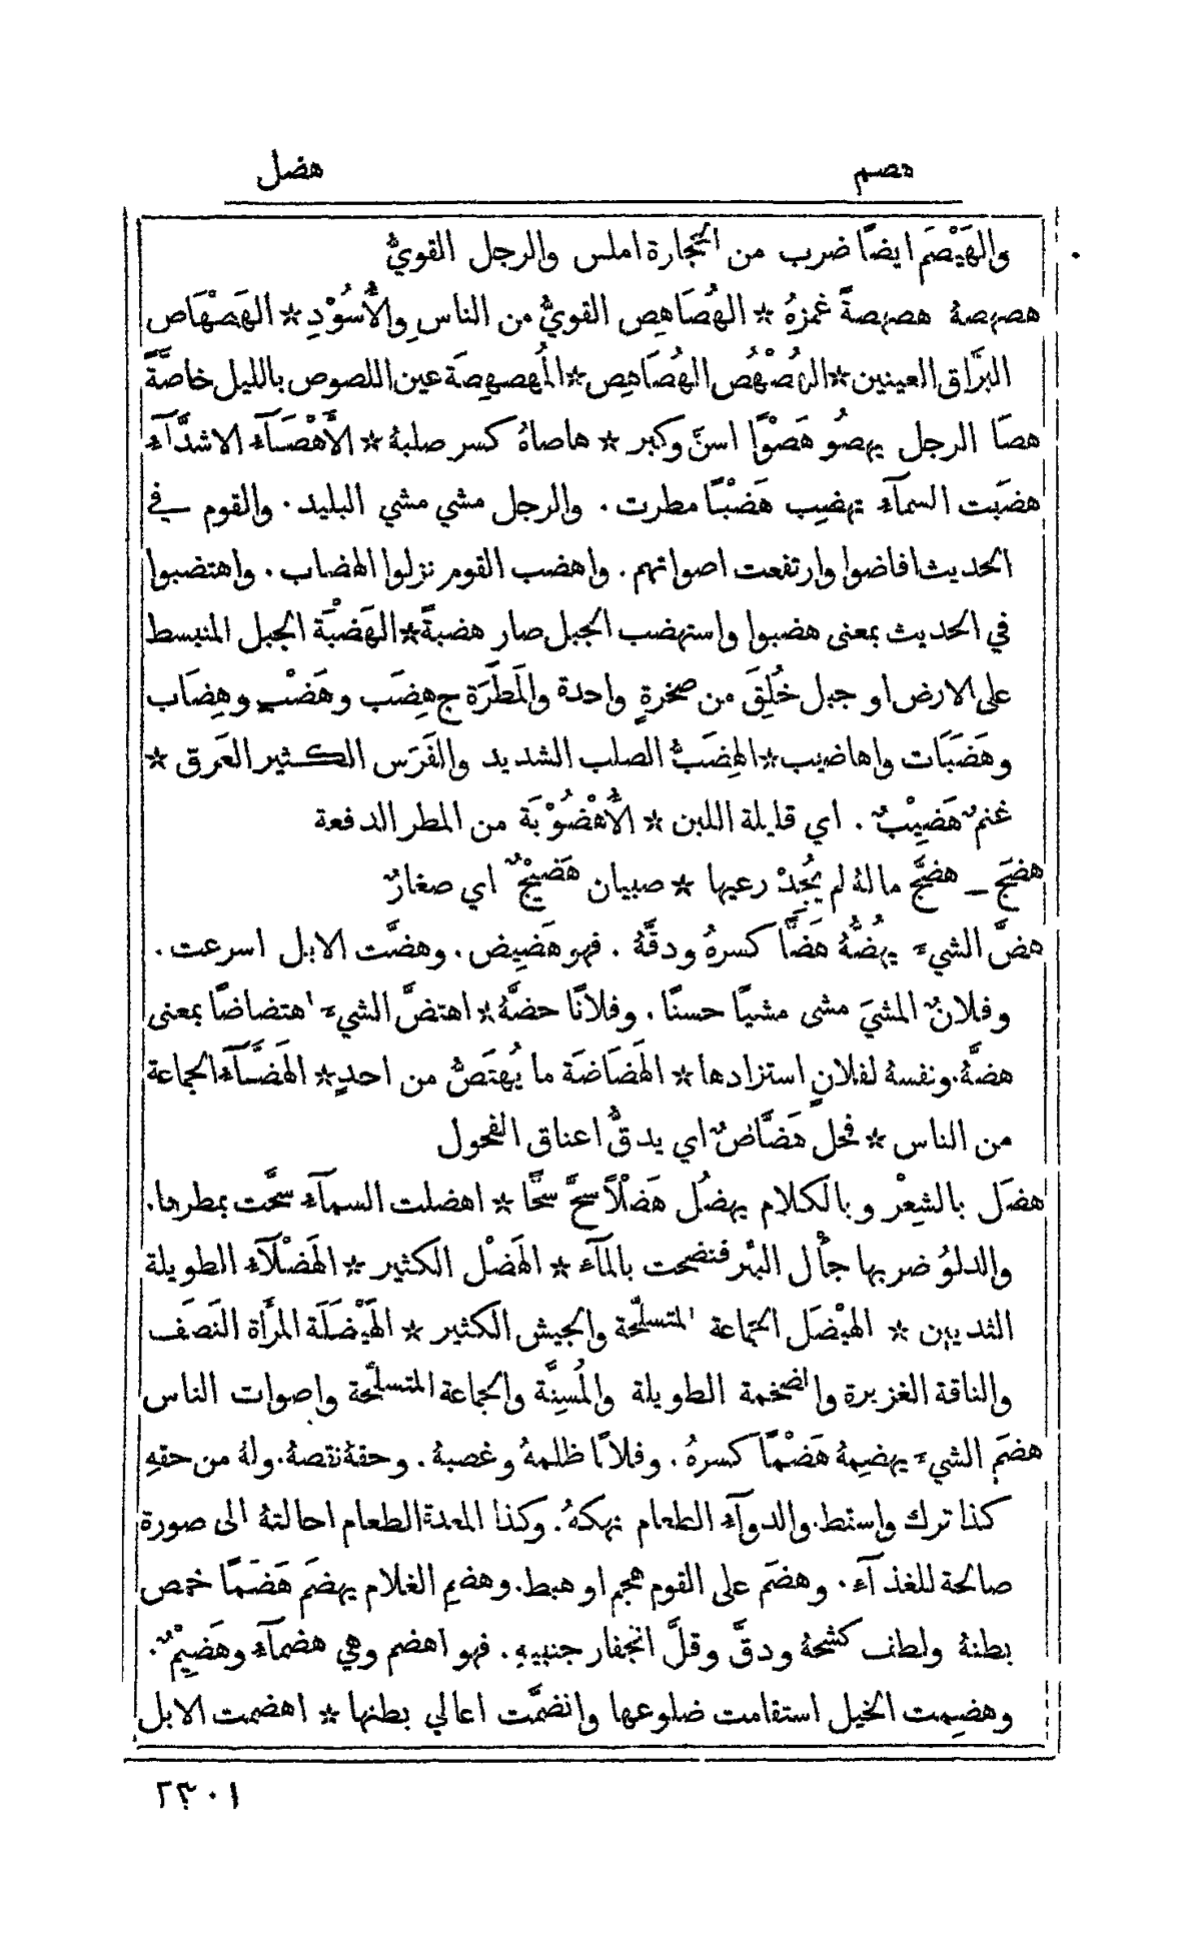 هصم
هضل
والهَيْصَم ايضًا ضرب من الحجارة املس والرجل القويُّ
هصهصهُ هصهصةً غمزهُ * الهُصَاهِص القويُّ من الناس والأُسُوْدِ * الهَصْهَاص
البرَّاق العينين * الهُصْهُص الهُصَاهِص * المُهصهِصَة عين اللصوص بالليل خاصَّةً
هصَا الرجل يهصُو هَصْوًا اسنَّ وكبر * هاصاهُ كسر صلبهُ * الأَهْصَآء الاشدَّآء
هضَبَت السمآء تهضِب هَضْبًا مطرت . والرجل مشي مشي البليد . والقوم في
الحديث افاضوا وارتفعت اصواتهم . واهضب القوم نزلوا الهضاب . واهتضبوا
في الحديث بمعنى هضبوا واستهضب الجبل صار هضبةً * الهَضْبَة الجبل المنبسط
على الارض او جبل خُلِقَ من صخرةٍ واحدة والمَطَرَة ج هِضَب وهَضْب وهِضَاب
وهَضَبَات واهاضيب * الهِضَبُّ الصلب الشديد والفَرَس الكثير العَرق *
غنمٌ هَضِيْبٌ . اي قليلة اللبن * الأُهْضُوْبَة من المطر الدفعة
هضَجَ ــ هضَّج مالهُ لم يُجِدْ رعيها * صبيان هَضِيْجٌ اي صغارٌ
هضَّ الشيءَ يهُضُّهُ هَضًّا كسرهُ ودقَّهُ . فهو هَضِيض . وهضَّت الابل اسرعت .
وفلانٌ المشيَ مشى مشيًا حسنًا . وفلانًا حضهُ * اهتضَّ الشيءَ اهتضاضًا بمعنى
هضَّهُ. ونفسهُ لفلانٍ استزادها * الهَضَاضَة ما يُهتَضُّ من احدٍ * الهَضَّآء الجماعة
من الناس * فحل هَضَّاضٌ اي يدقُّ اعناق الفحول
هضَل بالشِعْر وبالكلام يهضُل هَضْلًا سحَّ سحًّا * اهضلت السمآء سحَّت بمطرها.
والدلوُ ضربها جأل البئر فنضحت بالمآء * الهَضْل الكثير * الهَضْلَآء الطويلة
الثديين * الهيْضَل الجماعة المتسلّحة والجيش الكثير * الهَيْضَلَة المرأَة النَصَف
والناقة الغزيرة والضخمة الطويلة والمُسِنَّة والجماعة المتسلّحة واصوات الناس
هضَم الشيءَ يهضِمهُ هَضْمًا كسرهُ . وفلانًا ظلمهُ وغصبهُ . وحقهُ نقصهُ. ولهُ من حقهِ
كذا ترك واسقط. والدوآء الطعام نهكهُ. وكذا المعدة الطعام احالتهُ الى صورة
صالحة للغذآء . وهضَم على القوم هجم او هبط. وهضِم الغلام يهضَم هَضَمًا خمص
بطنهُ ولطف كشحهُ ودقَّ وقلَّ انجفار جنبيهِ . فهو اهضم وهي هضمآء وهَضِيْمٌ .
وهضِمت الخيل استقامت ضلوعها وانضمَّت اعالي بطنها * اهضمت الابل
٢٣٠١